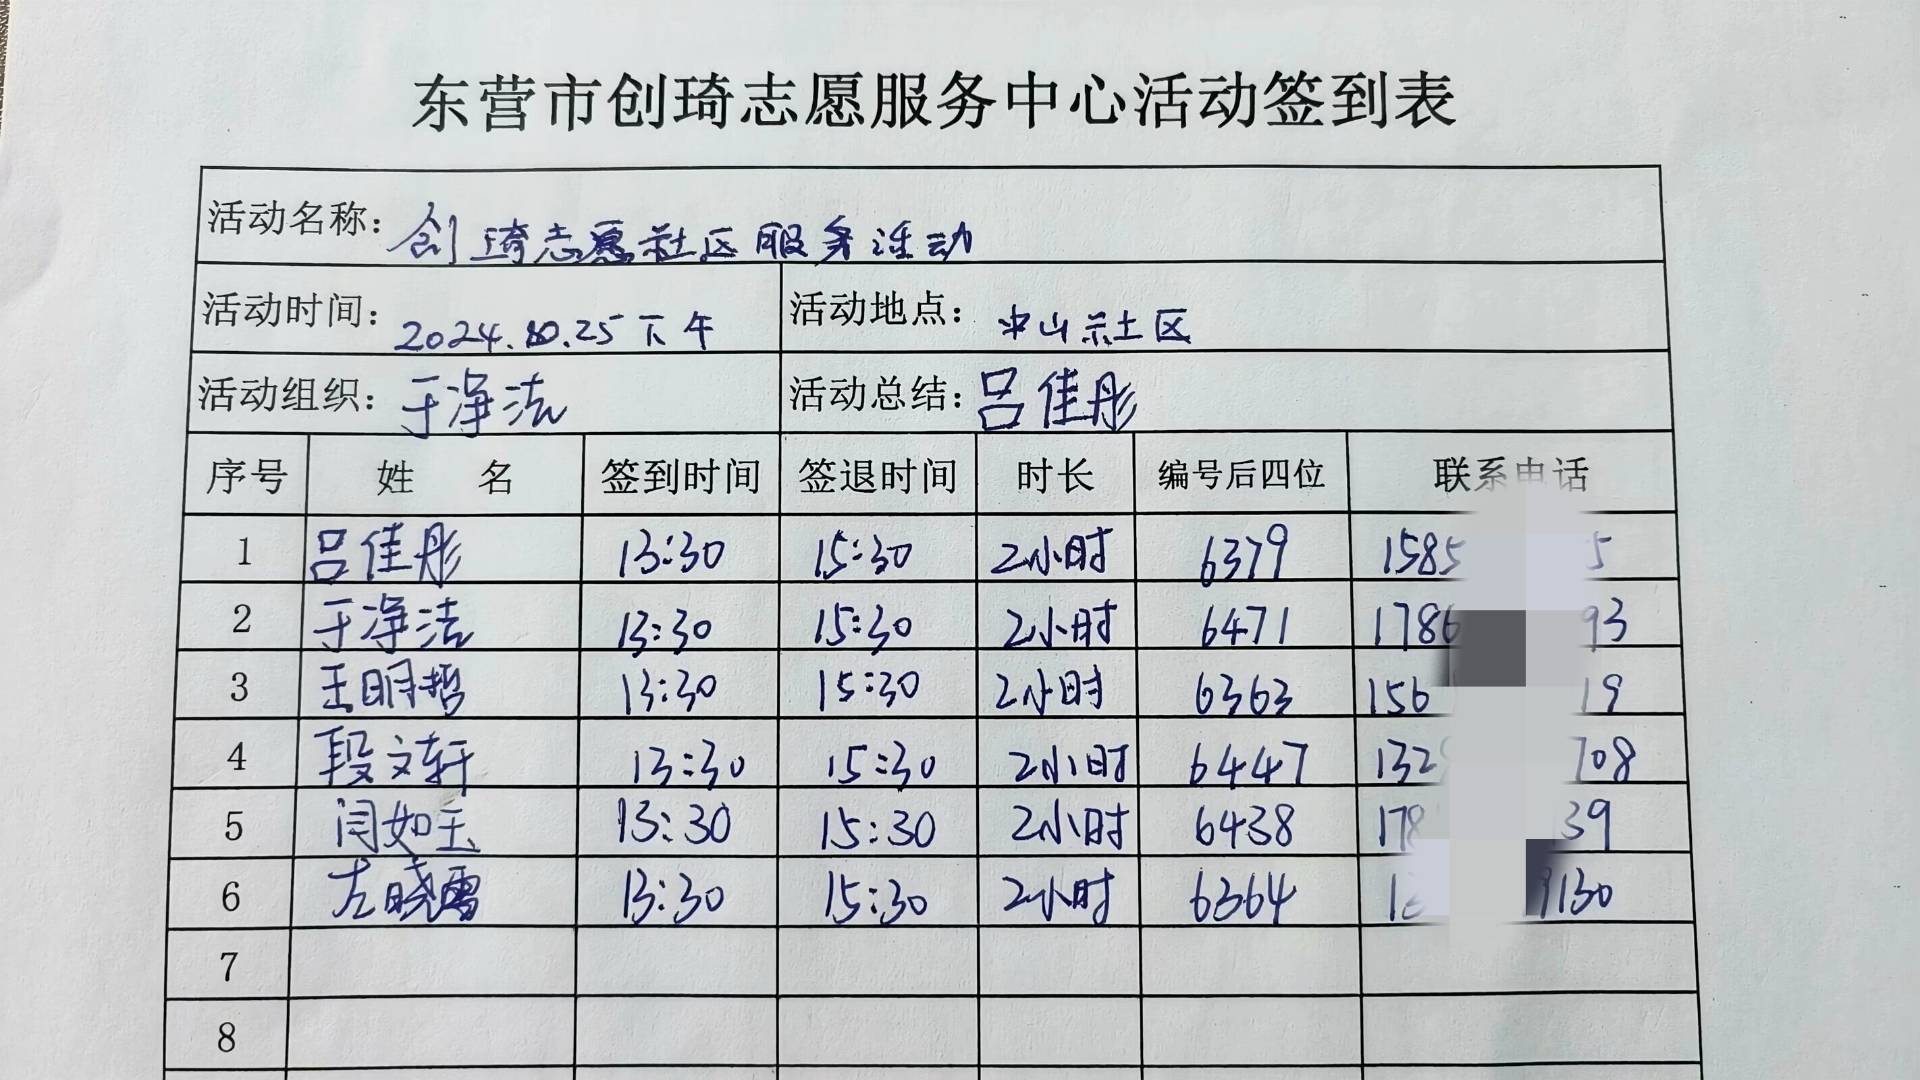 东营市创琦志愿服务中心活动签到表
活动名称：创琦志愿社区服务活动
活动时间：2024.10.25下午 活动地点：中山社区
活动组织：于净洁 活动总结：吕佳彤
序号 姓 名 签到时间 签退时间 时长 编号后四位 联系电话
1 吕佳彤 13:30 15:30 2小时 6379 1585 5
2 于净洁 13:30 15:30 2小时 6471 1786 93
3 王明哲 13:30 15:30 2小时 6363 156 19
4 段文轩 13:30 15:30 2小时 6447 132 708
5 闫如玉 13:30 15:30 2小时 6438 178 39
6 左晓雷 13:30 15:30 2小时 6364 1 9130
7
8